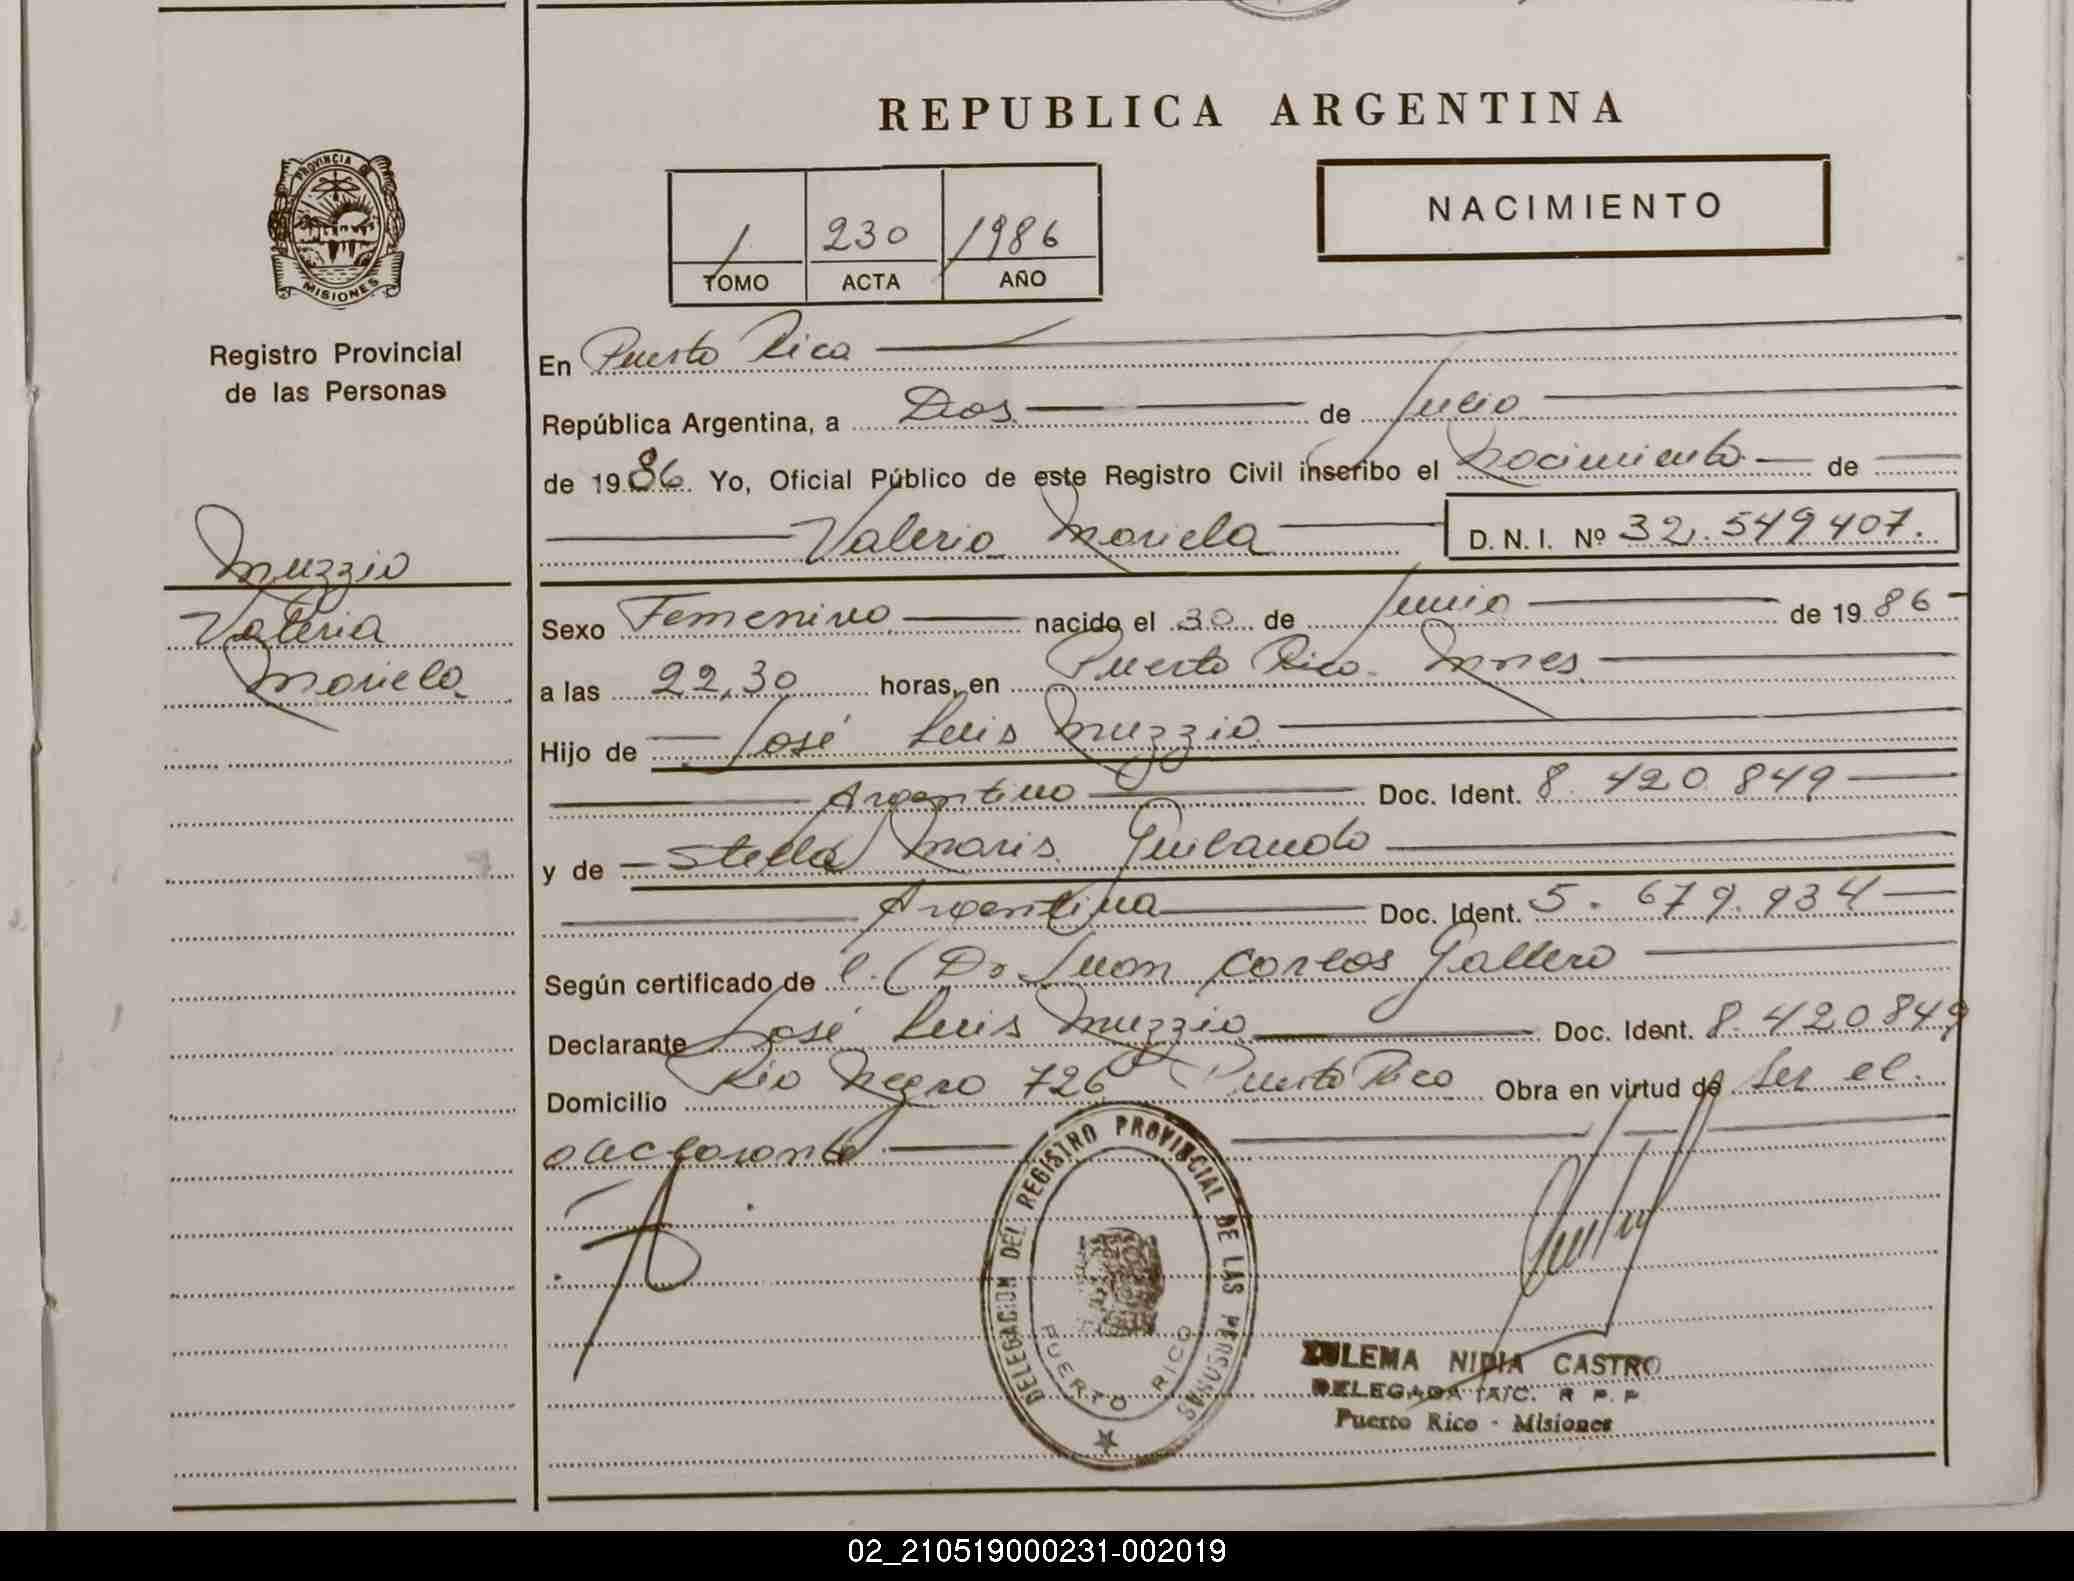 REPUBLICA ARGENTINA
PROVINCIA DE
MISIONES
Registro Provincial
de las Personas
1 230 1986
TOMO ACTA AÑO
NACIMIENTO
En Puerto Rico
República Argentina, a Dos de Julio
de 1986. Yo, Oficial Público de este Registro Civil inscribo el Nacimiento de
Valeria Mariela D. N. I. Nº 32.549407.
Muzzio
Valeria
Mariela
Sexo Femenino nacido el 30 de Junio de 1986
a las 22,30 horas, en Puerto Rico. Mnes.
Hijo de José Luis Muzzio
Argentino Doc. Ident. 8.420.849
y de Stella Maris
Argentina Doc. Ident. 5.679.934
Según certificado de Dr. Juan Carlos
Declarante José Luis Muzzio Doc. Ident. 8.420849
Domicilio Rio Negro 726 Puerto Rico Obra en virtud de Ser el
declarante
DELEGACION DEL REGISTRO PROVINCIAL DE LAS PERSONAS
PUERTO RICO
ZULEMA NIDIA CASTRO
DELEGADA R. P. P.
Puerto Rico - Misiones
02_210519000231-002019